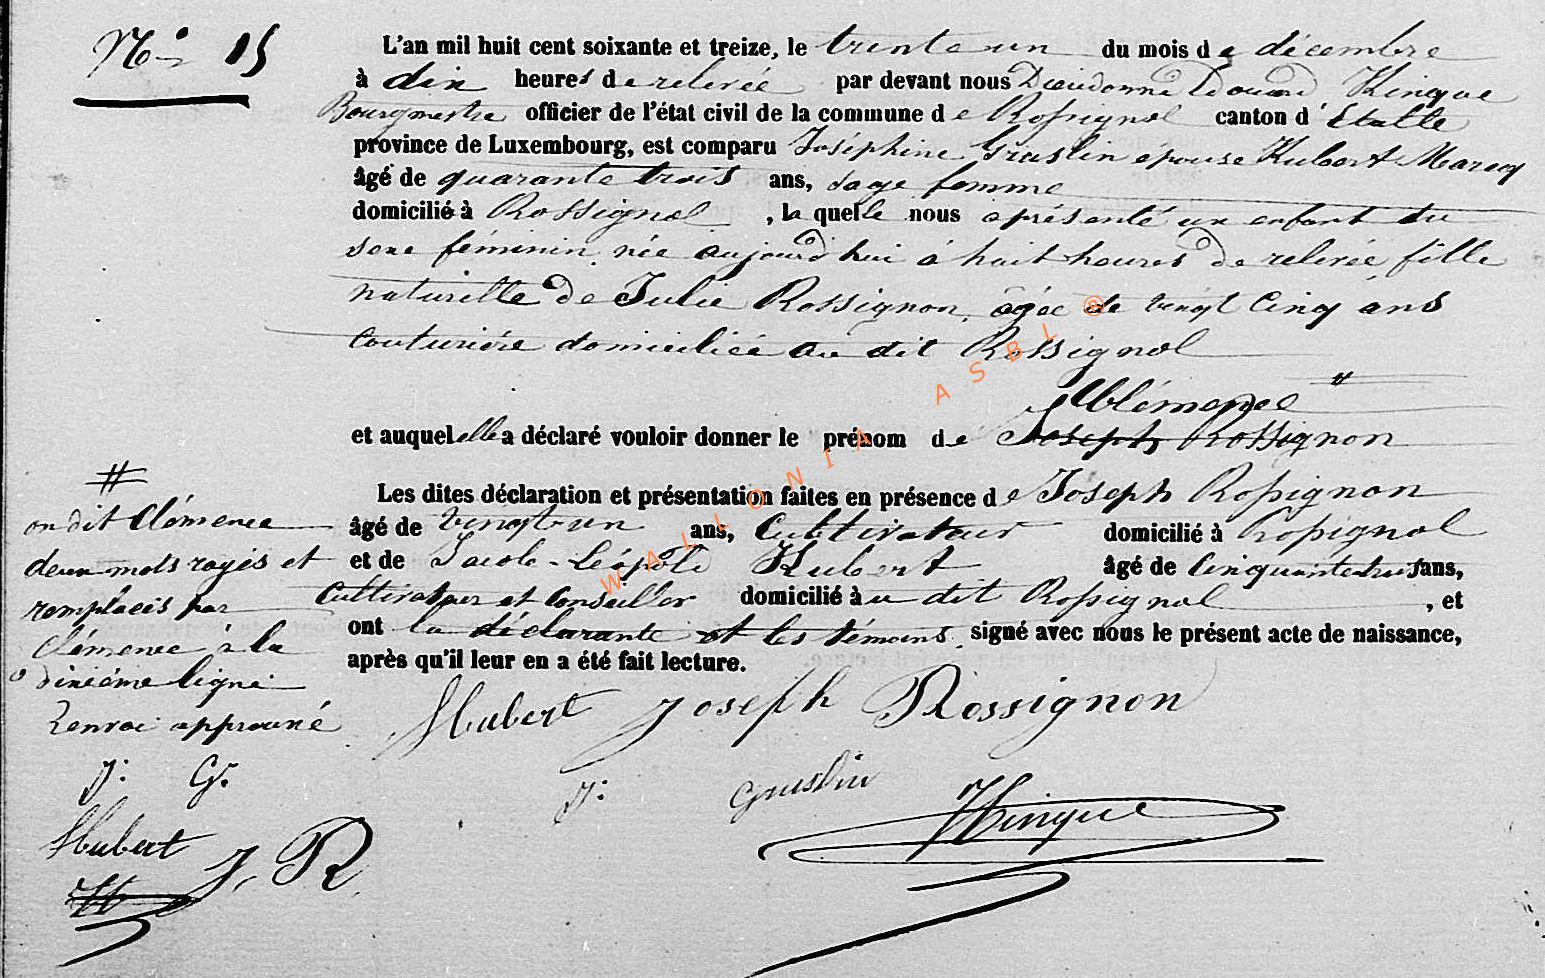 No 15
L'an mil huit cent soixante et treize, le trente un du mois de décembre
à dix heures de relevée par devant nous Dieudonné Edouard Hinque
Bourgmestre officier de l'état civil de la commune de Rossignol canton d'Etalle
province de Luxembourg, est comparu Joséphine Graslin épouse Hubert Marecq
âgé de quarante trois ans, sage femme
domicilié à Rossignol , la quelle nous a présenté un enfant du
sexe féminin, née aujourd'hui à huit heures de relevée, fille
naturelle de Julie Rossignon, âgée de vingt cinq ans
couturière domiciliée au dit Rossignol
Clémence #
et auquel elle a déclaré vouloir donner le prénom de Joseph Rossignon
Les dites déclaration et présentation faites en présence de Joseph Rossignon
âgé de vingt-un ans, Cultivateur domicilié à Rossignol
et de Jacob-Léopold Hubert âgé de cinquante trois ans,
Cultivateur et conseiller domicilié à u dit Rossignol , et
ont la déclarante et les témoins signé avec nous le présent acte de naissance,
après qu'il leur en a été fait lecture.
#
on dit Clémence
deux mots rayés et
remplacés par
Clémence à la
dixième ligne
Renvoi approuvé
J: G.
Hubert
J. R
H
Hubert Joseph Rossignon
J: Graslin
Hinque
WALLONIA ASBL ®